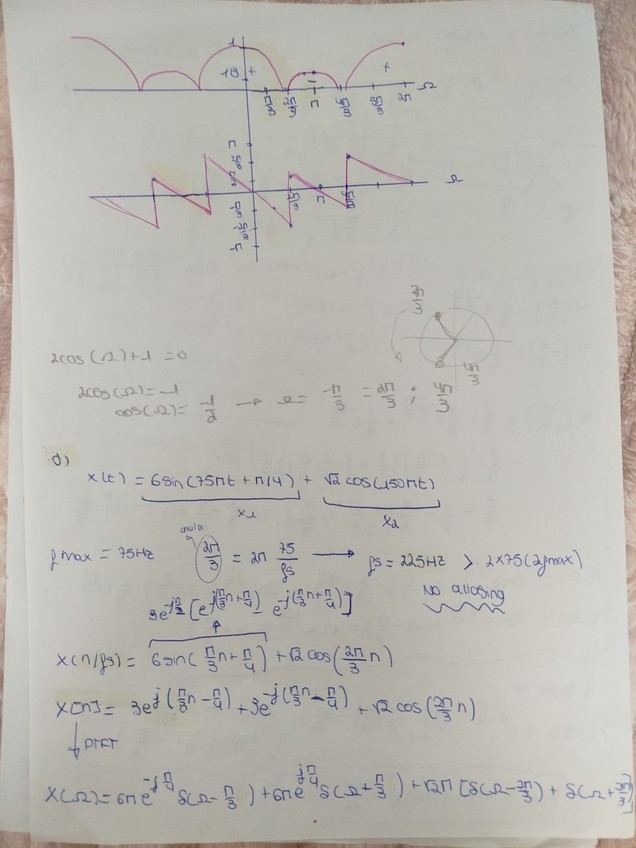 1
1/3
+
+
π/3 2π/3 π 4π/3 5π/3 2π Ω
π
Ω
2π/3 π 4π/3
2π/3
4π/3
2cos(Ω)+1=0
2cos(Ω)=-1
cos(Ω)= -1/2 → Ω= -π/3 = 2π/3 ; 4π/3
d)
x(t) = 6sin(75πt + π/4) + √2 cos(150πt)
x1 x2
fmax = 75Hz 2π/3 = 2π 75/fs → fs = 225Hz > 2×75(2fmax)
No aliasing
3e^-jπ/2 [e^j(π/3n+π/4) - e^-j(π/3n+π/4)]
x(n/fs) = 6sin(π/3n+π/4) + √2cos(2π/3 n)
x[n] = 3e^j(π/3n - π/4) + 3e^-j(π/3n - π/4) + √2 cos(2π/3 n)
↓ DTFT
X(Ω) = 6πe^-jπ/4 δ(Ω - π/3) + 6πe^jπ/4 δ(Ω + π/3) + √2π [δ(Ω - 2π/3) + δ(Ω + 2π/3)]